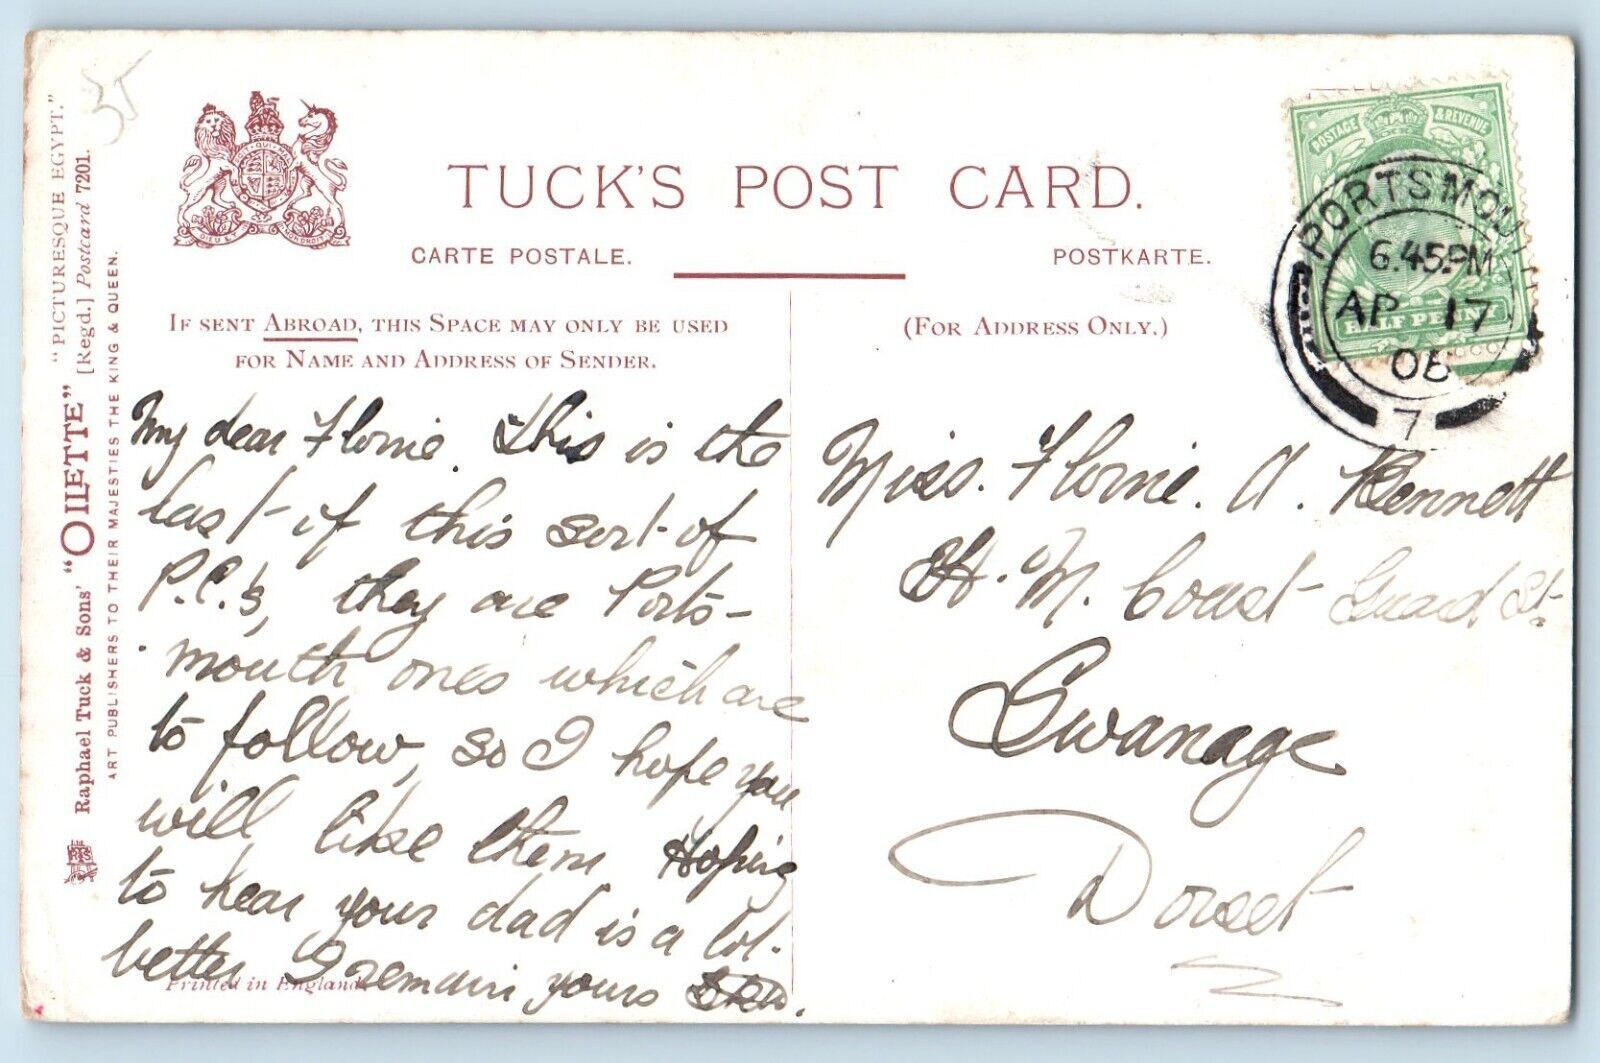 "PICTURESQUE EGYPT."
Raphael Tuck & Sons' "OILETTE" [Regd.] Postcard 7201.
ART PUBLISHERS TO THEIR MAJESTIES THE KING & QUEEN.
35
DIEU ET MON DROIT
TUCK'S POST CARD.
CARTE POSTALE.
POSTKARTE.
IF SENT ABROAD, THIS SPACE MAY ONLY BE USED
FOR NAME AND ADDRESS OF SENDER.
(FOR ADDRESS ONLY.)
POSTAGE & REVENUE
HALF PENNY
PORTSMOUTH
6.45PM
AP 17
06
7
My dear Florrie. This is the
last of this sort of
P.C.'s, they are Ports-
mouth ones which are
to follow, so I hope you
will like them Hoping
to hear your dad is a lot
better I remain yours
Printed in England.
Miss. Florrie. A. Bennett
H. M. Coast Guard St.
Swanage
Dorset